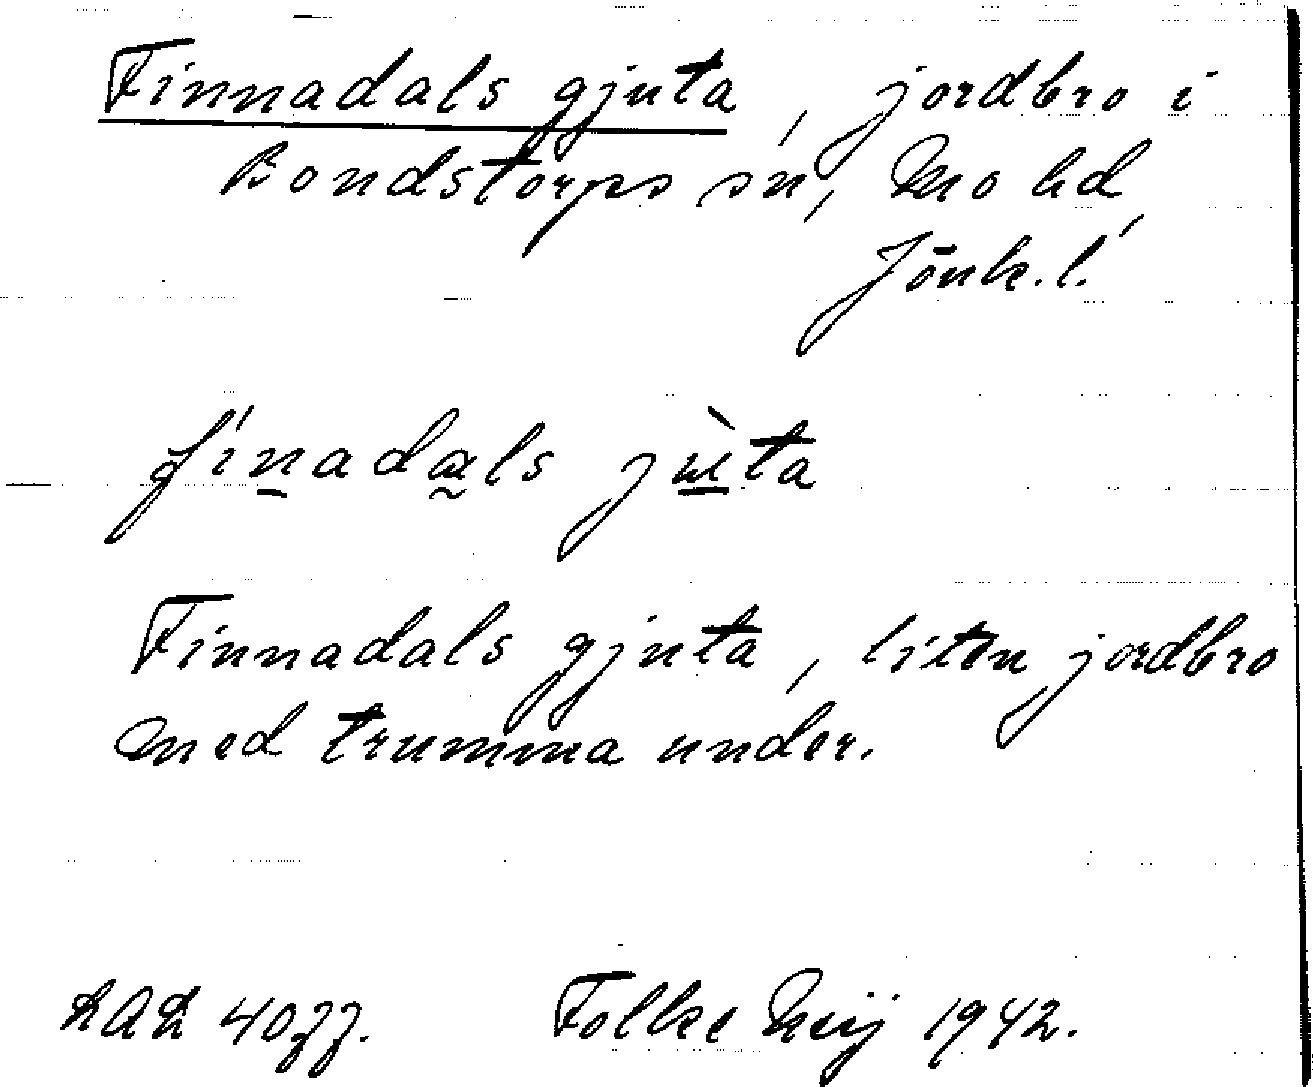 Finnadals gjuta, jordbro i
Bondstorps sn, Mo hd,
Jönk. l.
fínadals jùta
Finnadals gjuta, liten jordbro
med trumma under.
LAL 4077. Folke 1942.